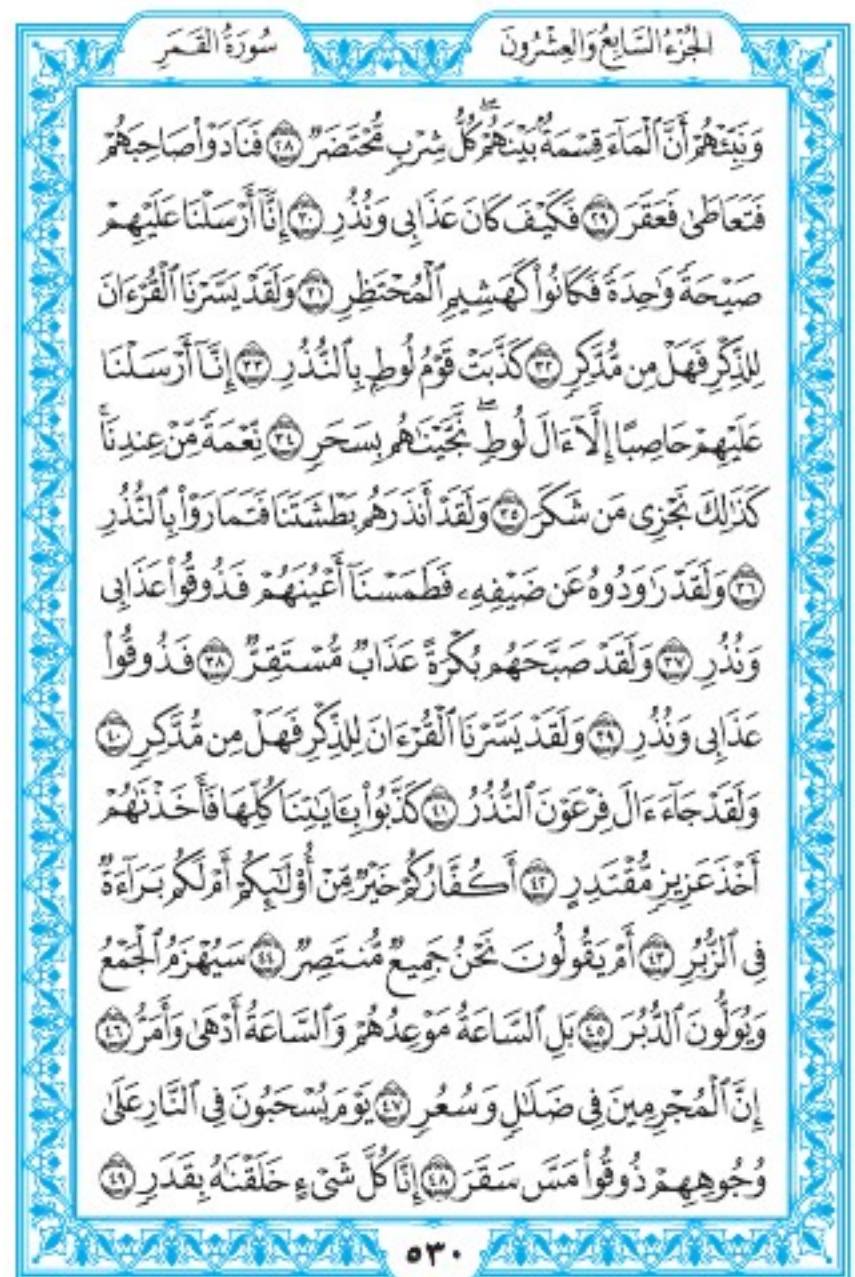 الجُزْءُ السَّابِعُ وَالعِشْرُونَ
سُورَةُ القَمَرِ
وَنَبِّئْهُمْ أَنَّ ٱلْمَآءَ قِسْمَةٌۢ بَيْنَهُمْۖ كُلُّ شِرْبٖ مُّحْتَضَرٞ ٢٨ فَنَادَوْاْ صَاحِبَهُمْ
فَتَعَاطَىٰ فَعَقَرَ ٢٩ فَكَيْفَ كَانَ عَذَابِي وَنُذُرِ ٣٠ إِنَّآ أَرْسَلْنَا عَلَيْهِمْ
صَيْحَةٗ وَٰحِدَةٗ فَكَانُواْ كَهَشِيمِ ٱلْمُحْتَظِرِ ٣١ وَلَقَدْ يَسَّرْنَا ٱلْقُرْءَانَ
لِلذِّكْرِ فَهَلْ مِن مُّدَّكِرٖ ٣٢ كَذَّبَتْ قَوْمُ لُوطِۭ بِٱلنُّذُرِ ٣٣ إِنَّآ أَرْسَلْنَا
عَلَيْهِمْ حَاصِبًا إِلَّآ ءَالَ لُوطٖۖ نَّجَّيْنَٰهُم بِسَحَرٖ ٣٤ نِّعْمَةٗ مِّنْ عِندِنَاۚ
كَذَٰلِكَ نَجْزِي مَن شَكَرَ ٣٥ وَلَقَدْ أَنذَرَهُم بَطْشَتَنَا فَتَمَارَوْاْ بِٱلنُّذُرِ
٣٦ وَلَقَدْ رَٰوَدُوهُ عَن ضَيْفِهِۦ فَطَمَسْنَآ أَعْيُنَهُمْ فَذُوقُواْ عَذَابِي
وَنُذُرِ ٣٧ وَلَقَدْ صَبَّحَهُم بُكْرَةً عَذَابٞ مُّسْتَقِرّٞ ٣٨ فَذُوقُواْ
عَذَابِي وَنُذُرِ ٣٩ وَلَقَدْ يَسَّرْنَا ٱلْقُرْءَانَ لِلذِّكْرِ فَهَلْ مِن مُّدَّكِرٖ ٤٠
وَلَقَدْ جَآءَ ءَالَ فِرْعَوْنَ ٱلنُّذُرُ ٤١ كَذَّبُواْ بِـَٔايَٰتِنَا كُلِّهَا فَأَخَذْنَٰهُمْ
أَخْذَ عَزِيزٖ مُّقْتَدِرٍ ٤٢ أَكُفَّارُكُمْ خَيْرٞ مِّنْ أُوْلَٰٓئِكُمْ أَمْ لَكُم بَرَآءَةٞ
فِي ٱلزُّبُرِ ٤٣ أَمْ يَقُولُونَ نَحْنُ جَمِيعٞ مُّنتَصِرٞ ٤٤ سَيُهْزَمُ ٱلْجَمْعُ
وَيُوَلُّونَ ٱلدُّبُرَ ٤٥ بَلِ ٱلسَّاعَةُ مَوْعِدُهُمْ وَٱلسَّاعَةُ أَدْهَىٰ وَأَمَرُّ ٤٦
إِنَّ ٱلْمُجْرِمِينَ فِي ضَلَٰلٖ وَسُعُرٖ ٤٧ يَوْمَ يُسْحَبُونَ فِي ٱلنَّارِ عَلَىٰ
وُجُوهِهِمْ ذُوقُواْ مَسَّ سَقَرَ ٤٨ إِنَّا كُلَّ شَيْءٍ خَلَقْنَٰهُ بِقَدَرٖ ٤٩
٥٣٠